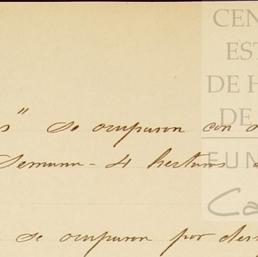 CEN
EST
DE H
DE
FUN
Ca
s" se ocuparon con
Semana - 4 hectares
se ocuparon por